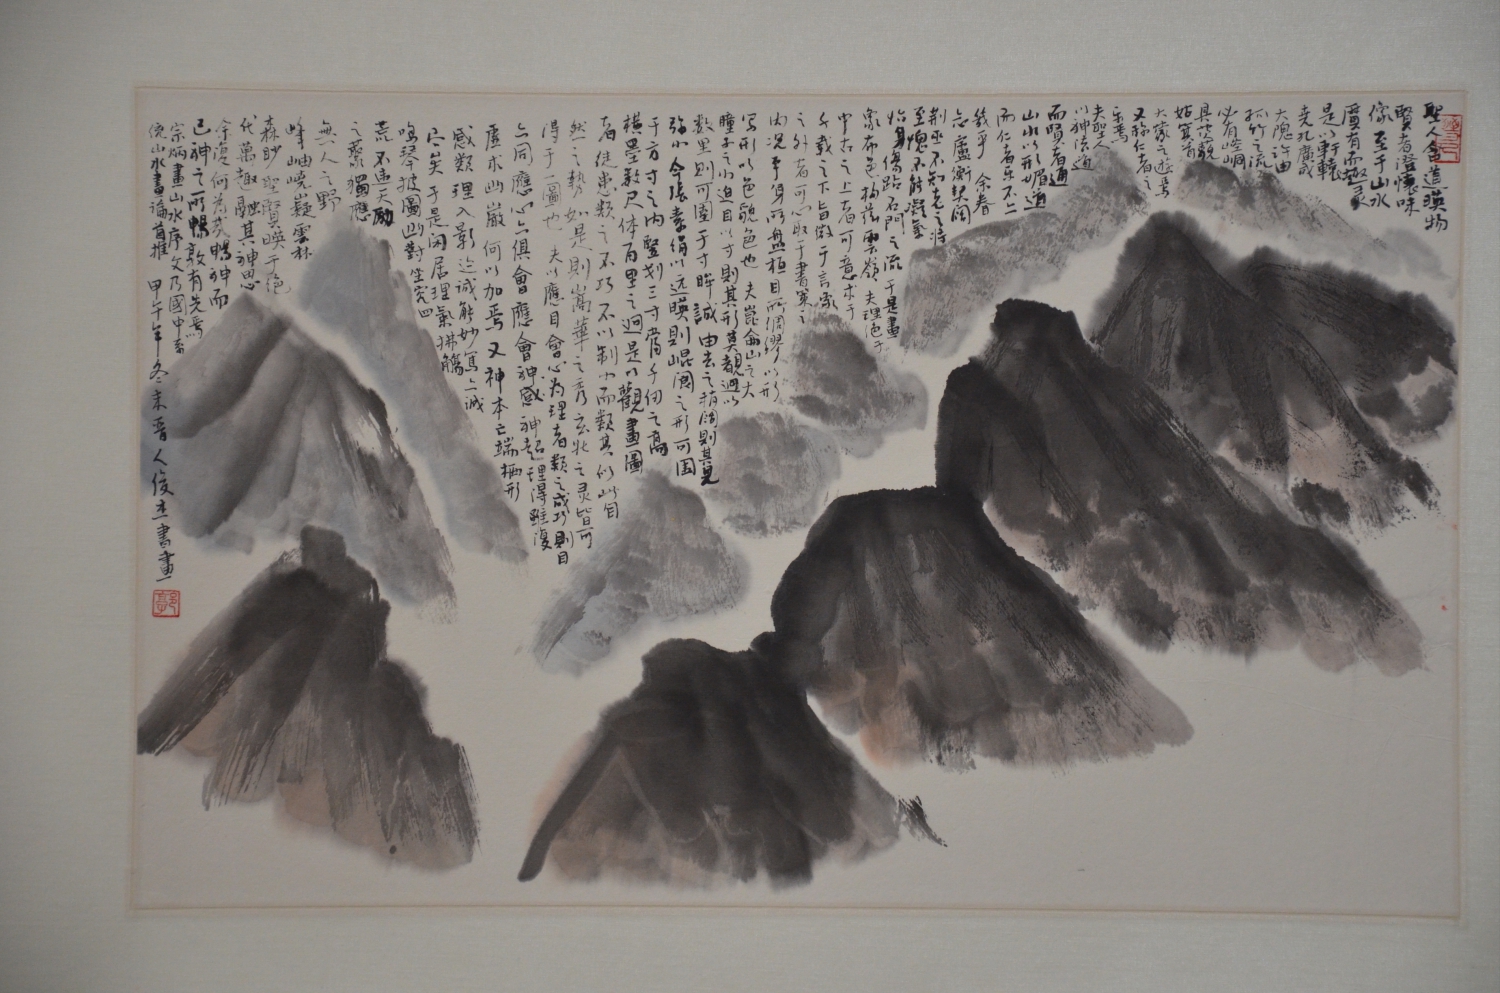 聖人含道暎物
賢者澄懷味
像至于山水
質有而趣灵
是以軒轅
堯孔廣成
大隗許由
孤竹之流
必有崆峒
具茨藐
姑箕首
大蒙之遊焉
又称仁者之
樂焉
夫聖人
以神法道
而賢者通
山水以形媚道
而仁者樂不亦
幾乎 余眷
恋廬衡契闊
荊巫不知老之将
至愧不能凝氣
怡身傷跕石門之流于是畫
象布色構茲雲嶺 夫理绝于
中古之上者可意求于
千載之下旨微于言象
之外者可心取于書策之
内况乎身所盤桓目所绸繆以形
写形以色貌色也 夫崑崙山之大
瞳子之小迫目以寸則其形莫覩迥以
数里則可圍于寸眸誠由去之稍闊則其見
弥小今張素绢以远暎則崐阆之形可囯
于方寸之内竪划三寸當千仞之高
横墨数尺体百里之迥是以觀畫圖
者徒患類之不巧不以制小而類其似此自
然之势如是則嵩華之秀玄牝之灵皆可
得于一圖也 夫以應目會心为理者類之成巧則目
亦同應心亦俱會應會神感神超理得雖復
虚求幽巖何以加焉又神本亡端栖形
感類理入影迹诚能妙写亦诚
尽矣于是闲居理氣拂觴
鳴琴披圖幽對坐究四
荒不违天励
之藂獨應
無人之野
峰岫嶢嶷雲林
森眇聖賢暎于绝
代萬趣融其神思
余復何为哉暢神而
已神之所暢孰有先焉
宗炳畫山水序文乃國中
山水畫論首推 甲午年冬末晋人俊杰書畫